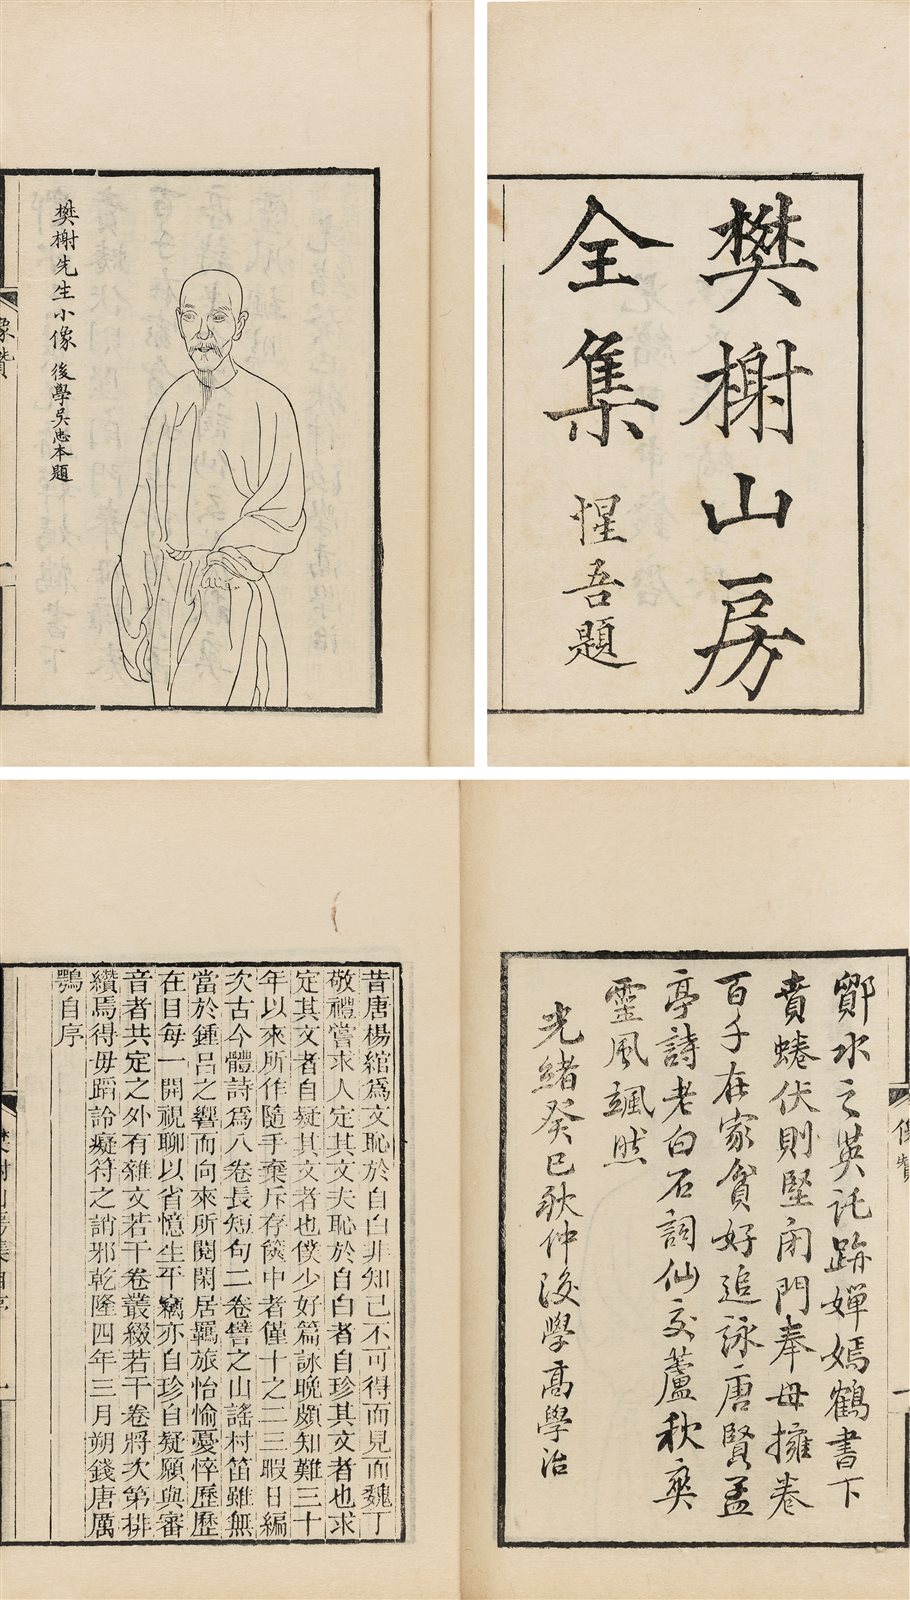 樊榭山房
全集
惺吾題
樊榭先生小像 後學吳忠本題
像贊
鄮水之英託跡嬋嫣鶴書下
賁蜷伏則堅閉門奉母擁卷
百千在家貧好追詠唐賢孟
亭詩老白石詞仙交蘆秋爽
靈風颯然
光緒癸巳秋仲後學高學治
像贊
昔唐楊綰為文恥於自白非知己不可得而見而魏丁
敬禮嘗求人定其文夫恥於自白者自珍其文者也求
定其文者自疑其文者也僕少好篇詠晚頗知難三十
年以來所作隨手棄斥存篋中者僅十之二三暇日編
次古今體詩為八卷長短句二卷譬之山謠村笛雖無
當於鍾呂之響而向來所閱閑居羈旅怡愉憂悴歷歷
在目每一開視聊以省憶生平竊亦自珍自疑願與審
音者共定之外有雜文若干卷叢綴若干卷將次第排
纘焉得毋蹈詅癡符之誚邪乾隆四年三月朔錢唐厲
鶚自序
樊榭山房集自序